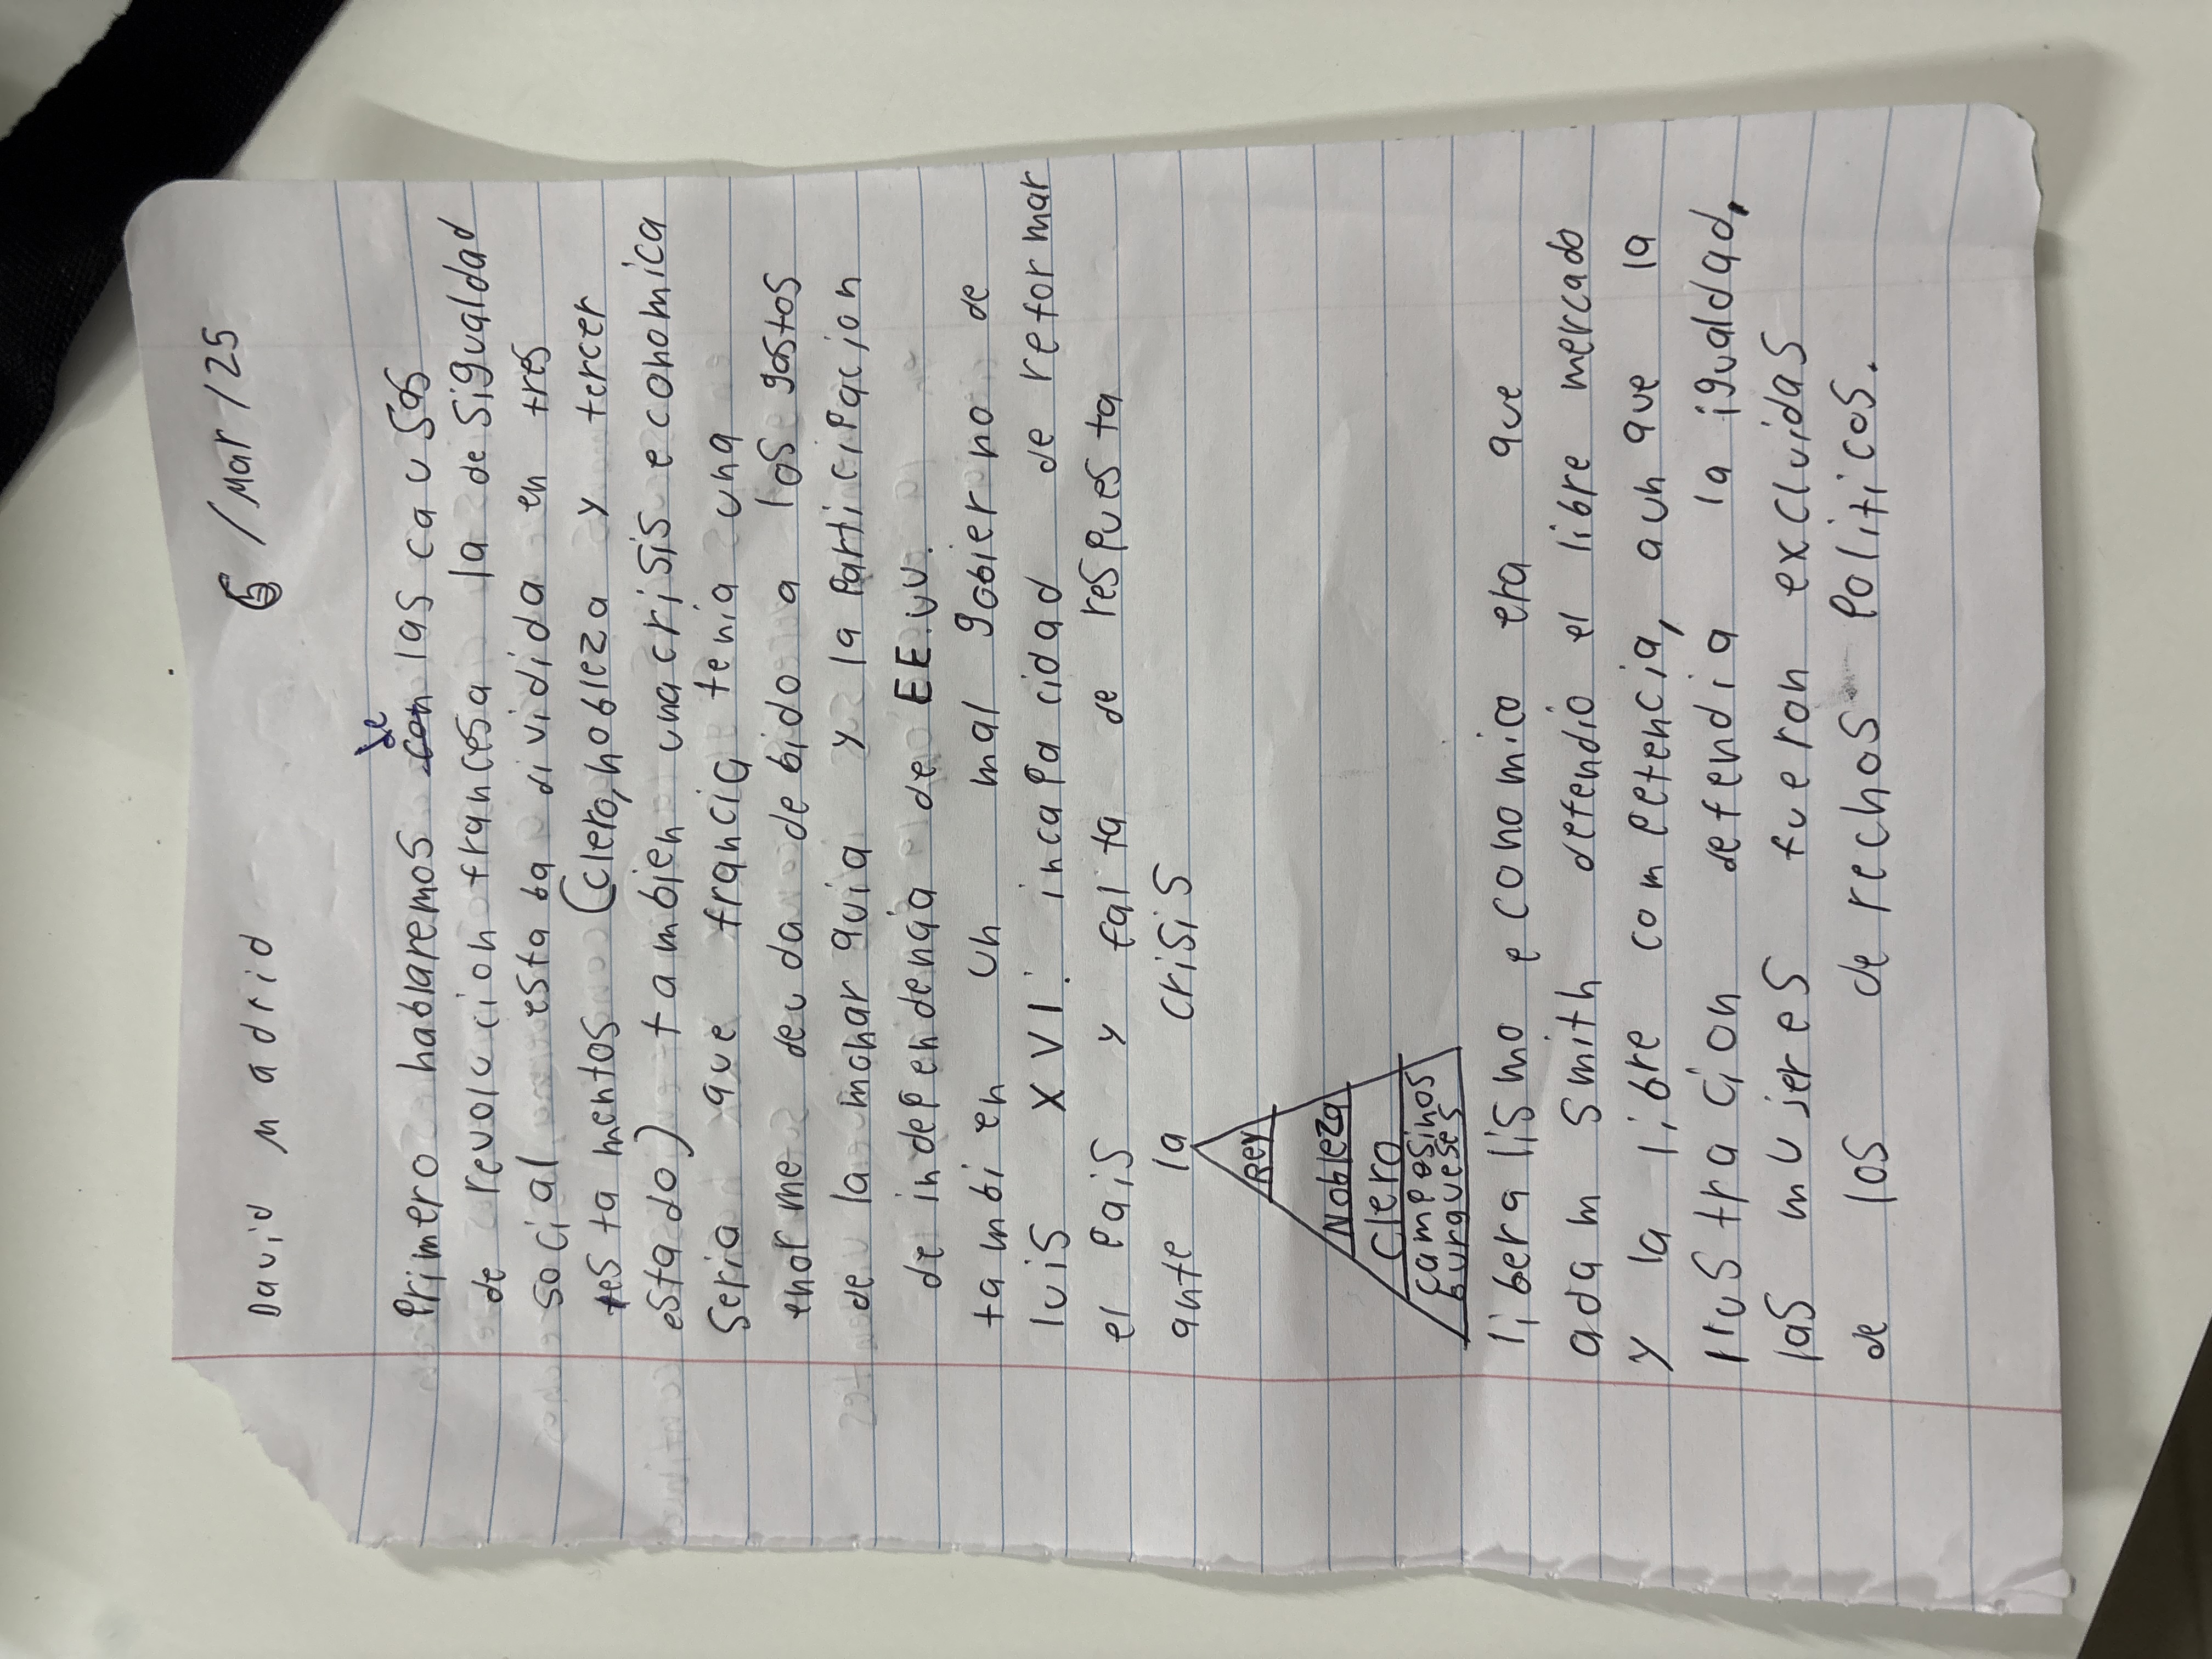 David Madrid 6/Mar/25
de
Primero hablaremos con las causas
de revolucion francesa la desigualdad
social estaba dividida en tres
estamentos (clero, nobleza y tercer
estado) tambien una crisis economica
seria que francia tenia una
enorme deuda debido a los gastos
de la monarquia y la participacion
de independencia de EE.UU.
tambien un mal gobierno de
luis XVI incapacidad de reformar
el pais y falta de respuesta
ante la crisis
Rey
Nobleza
Clero
campesinos
burgueses
liberalismo economico era que
adam smith defendio el libre mercado
y la libre competencia, aunque la
Ilustracion defendia la igualdad,
las mujeres fueron excluidas
de los derechos politicos.